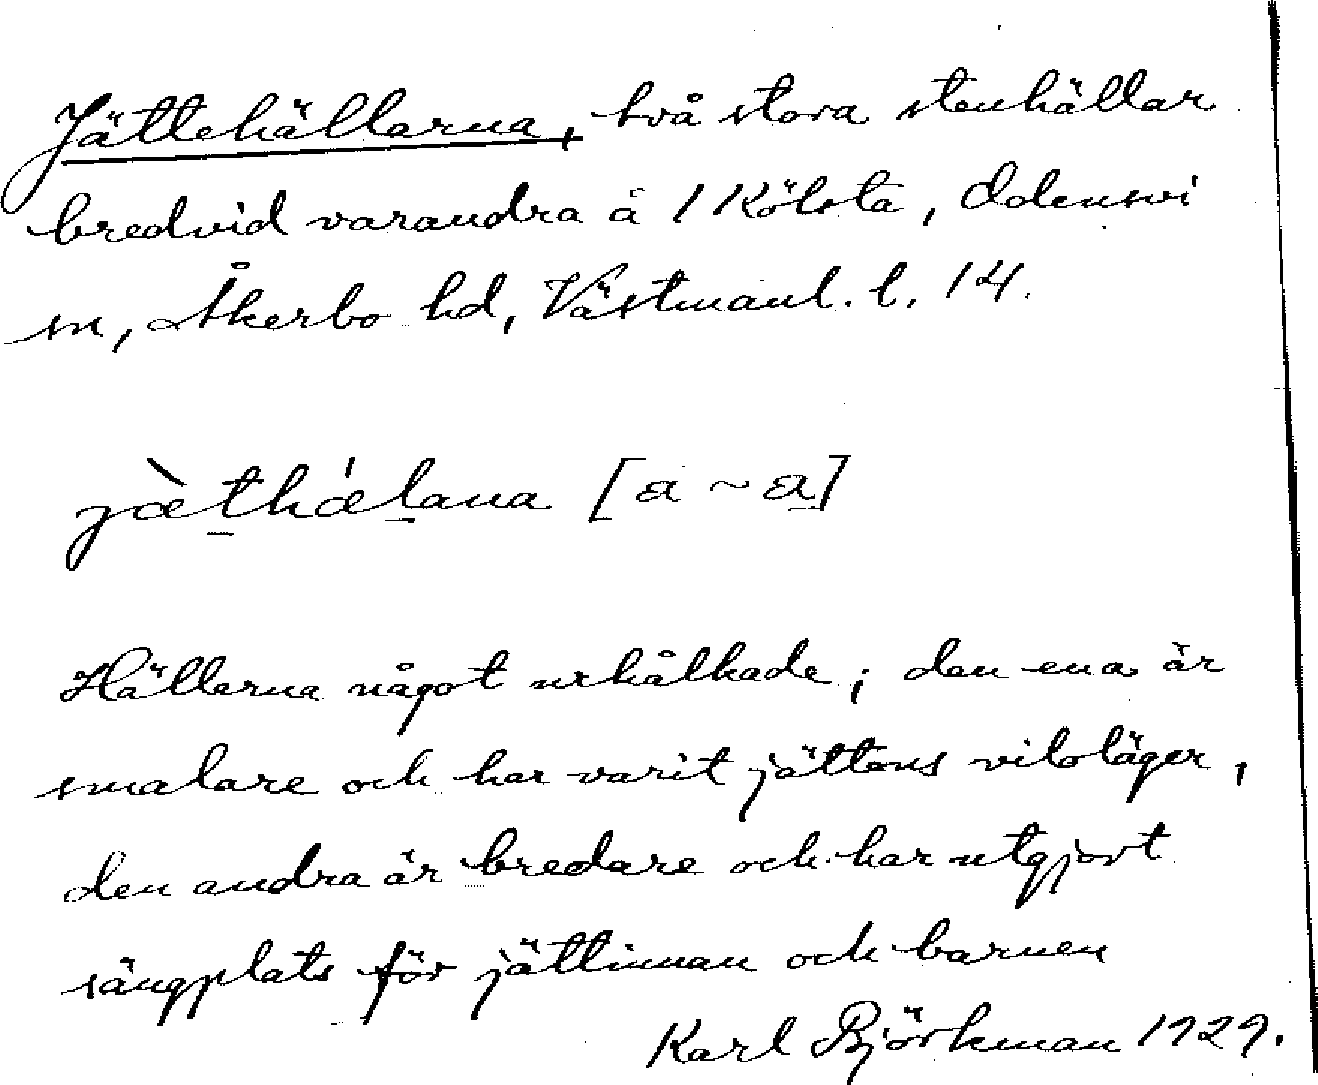 Jättehällarna, två stora stenhällar
bredvid varandra å 1 Kölsta, Odensvi
sn, Åkerbo hd, Västmanl. l. 14.
jæ̀thǽlana [a ~ a]
Hällarna något urhålkade; den ena är
smalare och har varit jättens viloläger,
den andra är bredare och har utgjort
sängplats för jättinnan och barnen
Karl Björkman 1929.